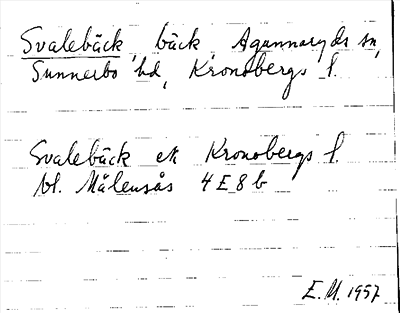 Svalebäck, bäck, Agunnaryds sn,
Sunnerbo hd, Kronobergs l.
Svalebäck ek Kronobergs l.
bl. Målensås 4E8b
E.M. 1957